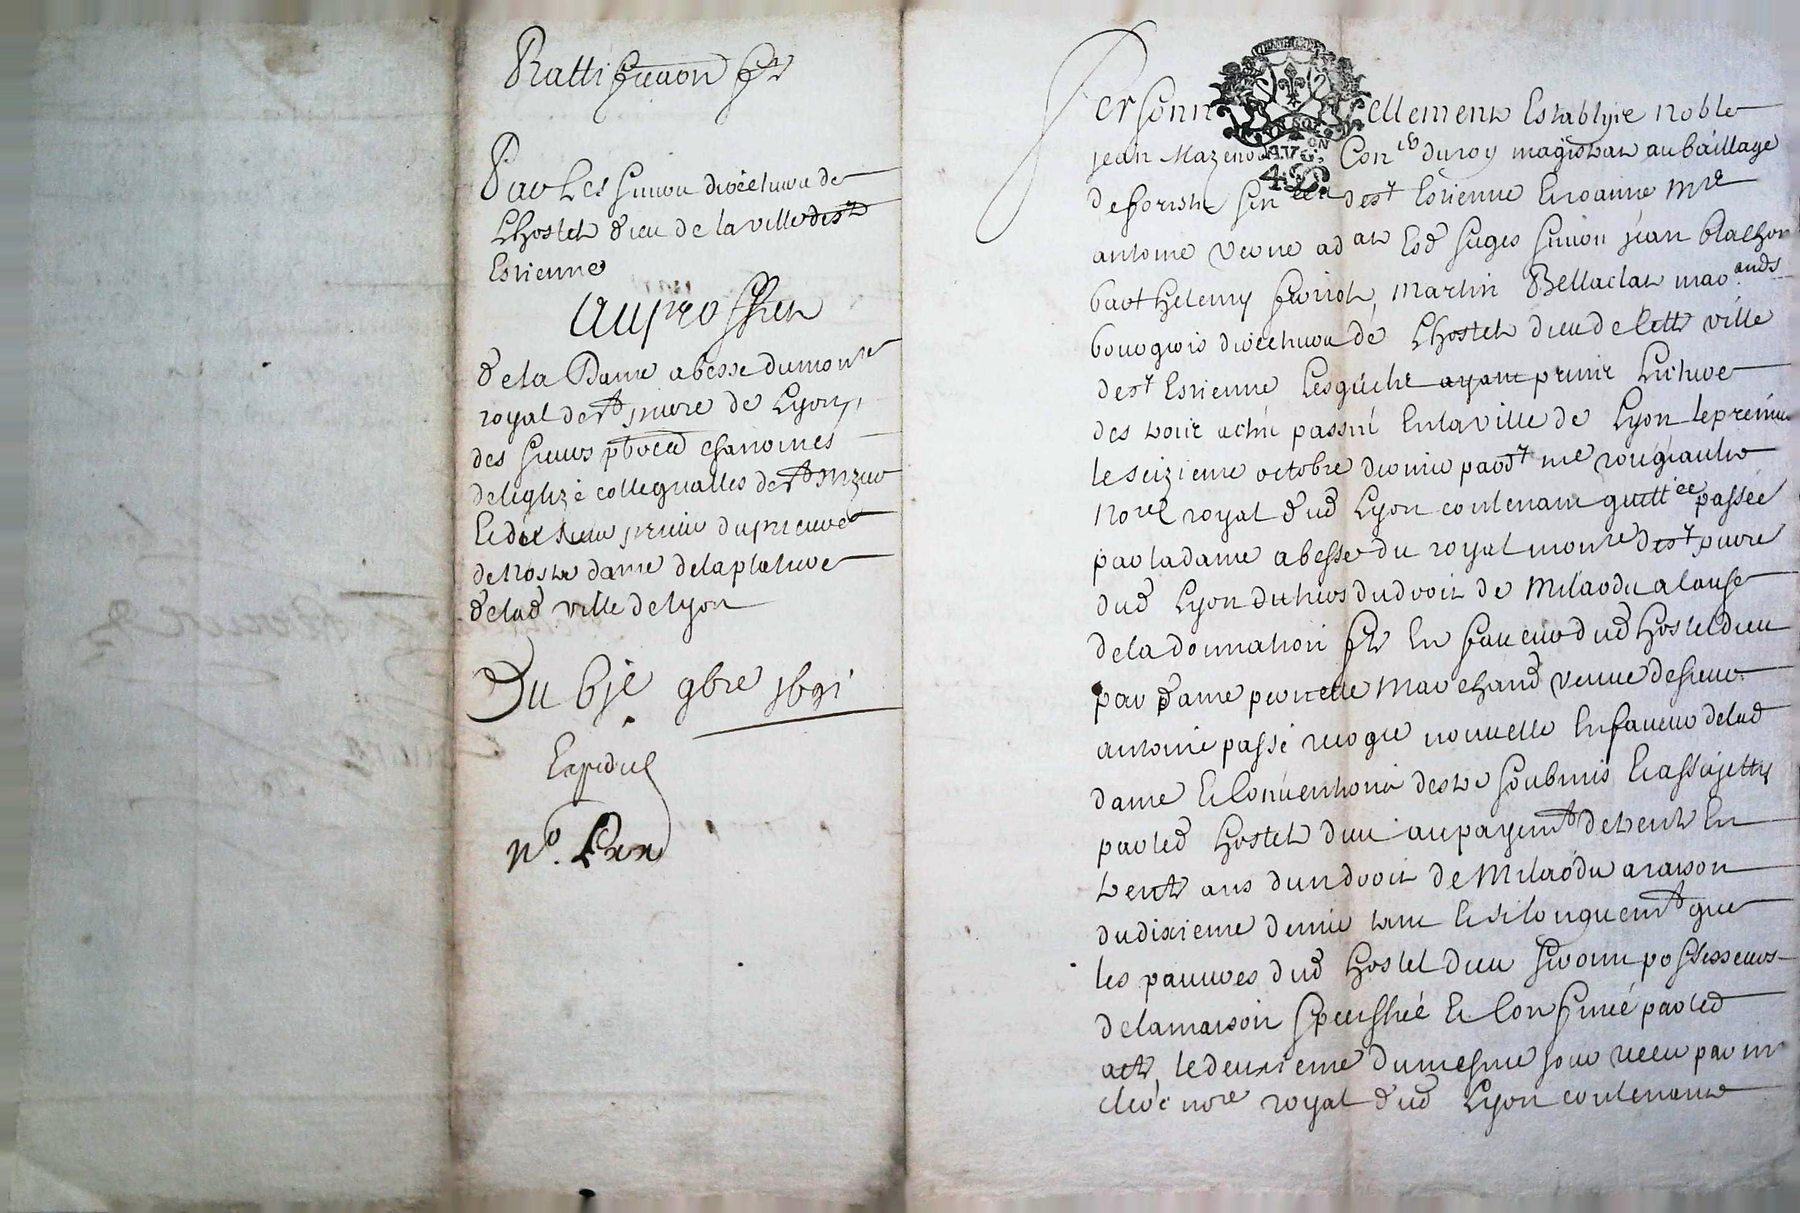 Rattiffication fte
Par Les sieurs directeurs de
Lhostel dieu de la ville de st
Estienne
Au proffict
de la Dame abesse du mon.re
royal de st pierre de Lyon
des sieurs chanoines
de leglize collegialles de st nizier
Et de sieur prieur du prieuré
de Nostre dame de la platiere
de lad ville de lyon
Du bje 9bre 1691
Expedié
No.
Personnellement Establyie noble
jean Mazenod Con.er du roy magistrat au bailliage
de fforestz st Estienne Mre
antoine verne ad at Esd sieges sieurs jean blachon
barthelemy Martin Bellaclat march.ands
bourgois directeurs de Lhostel dieu de cette ville
de st Estienne Lesquelz ayant prins Lecture
des trois actes passés En la ville de Lyon le premier
le seizieme octobre dernier par d.t me
No.re royal dud Lyon contenant quitt.ce passée
par la dame abesse du royal mon.re de st pierre
dud Lyon du tiers du droit de Milaodz a cause
de la donnation fte En faveur dud hostel dieu
par dame pierrette Marchand veuve de sieur
antoine passé nouvelle En faveur de lad
dame Et Convention destre soubmis Et assujetty
par led hostel dieu au payem.t de trente En
trente ans dun droit de Milaodz a raison
du dixieme denier tant Et si longuem.t que
les pauvres dud hostel dieu seront possesseurs
de la maison speciffiée Et Confinée par led
acte, le deuxieme du mesme jour receu par m
no.re royal dud Lyon contenant